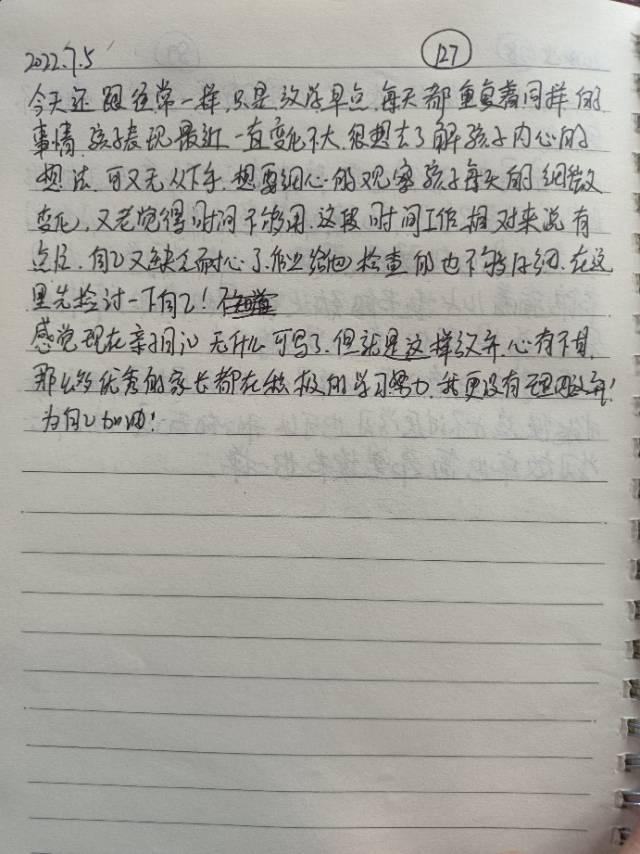 2022.7.5 127
今天还跟往常一样,只是放学早点,每天都重复着同样的
事情,孩子表现最近一直变化不大,很想去了解孩子内心的
想法,可又无从下手,想要细心的观察孩子每天的细微
变化,又老觉得时间不够用,这段时间工作相对来说有
点压,自己又缺乏耐心了,作业给他检查的也不够仔细,在这
里先检讨一下自己!
感觉现在亲子日记无什么可写了,但就是这样放弃,心有不甘,
那么多优秀的家长都在积极的学习努力,我更没有理由放弃!
为自己加油!